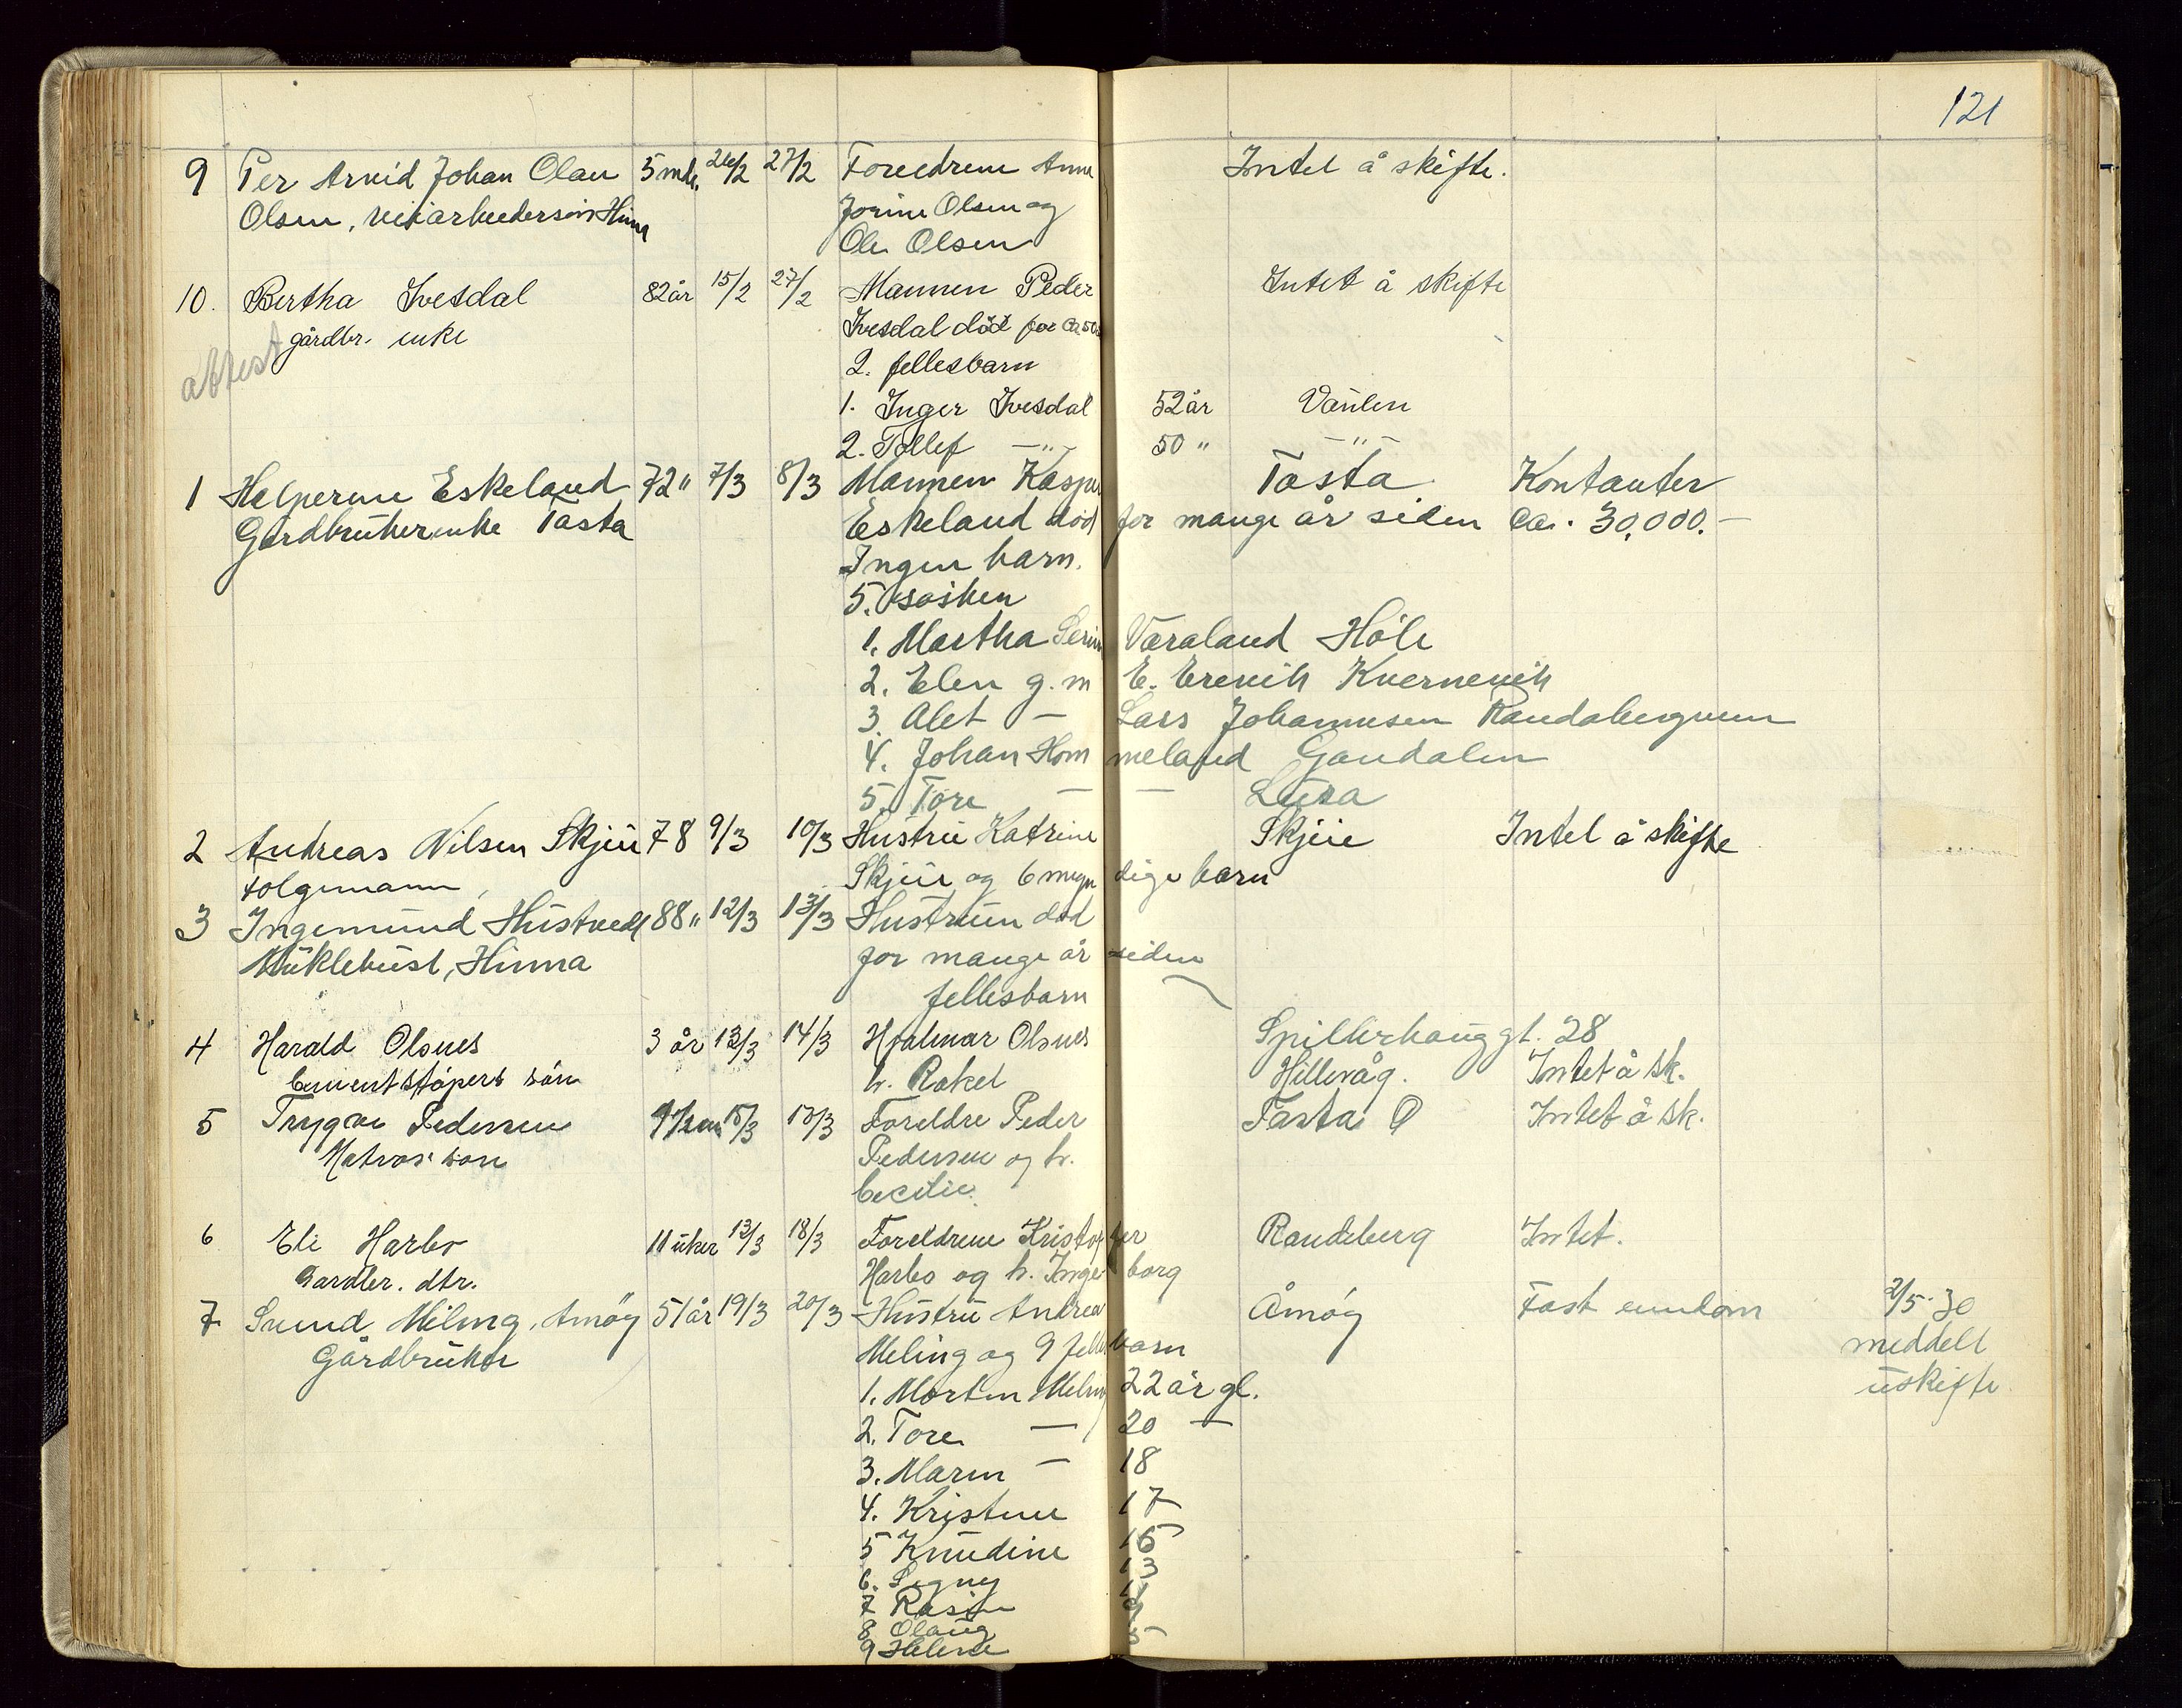 121
9 Per Arvid Johan Olav 5 mdr. 26/2 27/2 Foreldrene Anna Intet å skifte.
Olsen, veiarbeidersøn Hinna Jorine Olsen og
Ole Olsen
10. Bertha Ivesdal 82 år 15/2 27/2 Mannen Peder Intet å skifte
gårdbr. enke Ivesdal död for ca 50
attest 2. fellesbarn
1. Inger Ivesdal 52 år Vaulen
2. Tollef —"— 50 " —"—
1 Helperine Eskeland 72 " 7/3 8/3 Mannen Kasper Tasta Kontanter
Gårdbrukerenke Tasta Eskeland död for mange år siden Ca. 30,000.—
Ingen barn.
5. søsken
1. Martha Serine Varaland Höle
2. Elen g. m E. Erevik Kvernevik
3. Alet — Lars Johannesen Randabergveien
4. Johan Hommeland Gandalen
5. Tore — — Lura
2 Andreas Nilsen Skjeie 78 9/3 10/3 Hustru Katrine Skjeie Intet å skifte
folgemann, Skjeie og 6 myndige barn
3 Ingemund Hustvedt 88 " 12/3 13/3 Hustruen död
Muklebust, Hinna for mange år siden
fellesbarn —
4 Harald Olsnes 3 år 13/3 14/3 Hjalmar Olsnes Spilderhauggt. 28
Cementstöpers sön h. Rakel Hillevåg. Intet å sk.
5 Trygve Pedersen 15/3 Foreldre Peder Tasta Intet å sk.
Matros sön Pedersen og h.
Cecilie.
6 Eli Harbo 11 uker 13/3 18/3 Foreldrene Kristofer Randeberg Intet.
Gardbr. dtr. Harbo og h. Ingeborg
7 Svend Meling, Åmöy 51 år 19/3 20/3 Hustru Andrea Åmöy Fast eiendom 2/5-30
Gårdbruker Meling og 9 felles barn meddelt
1. Morten Meling 22 år gl. uskifte
2. Tore — 20 —
3. Maren — 18
4. Kristine 17
5 Knudine 15
6. Signy 13
7 Rasin
8 Olaug
9 Helene